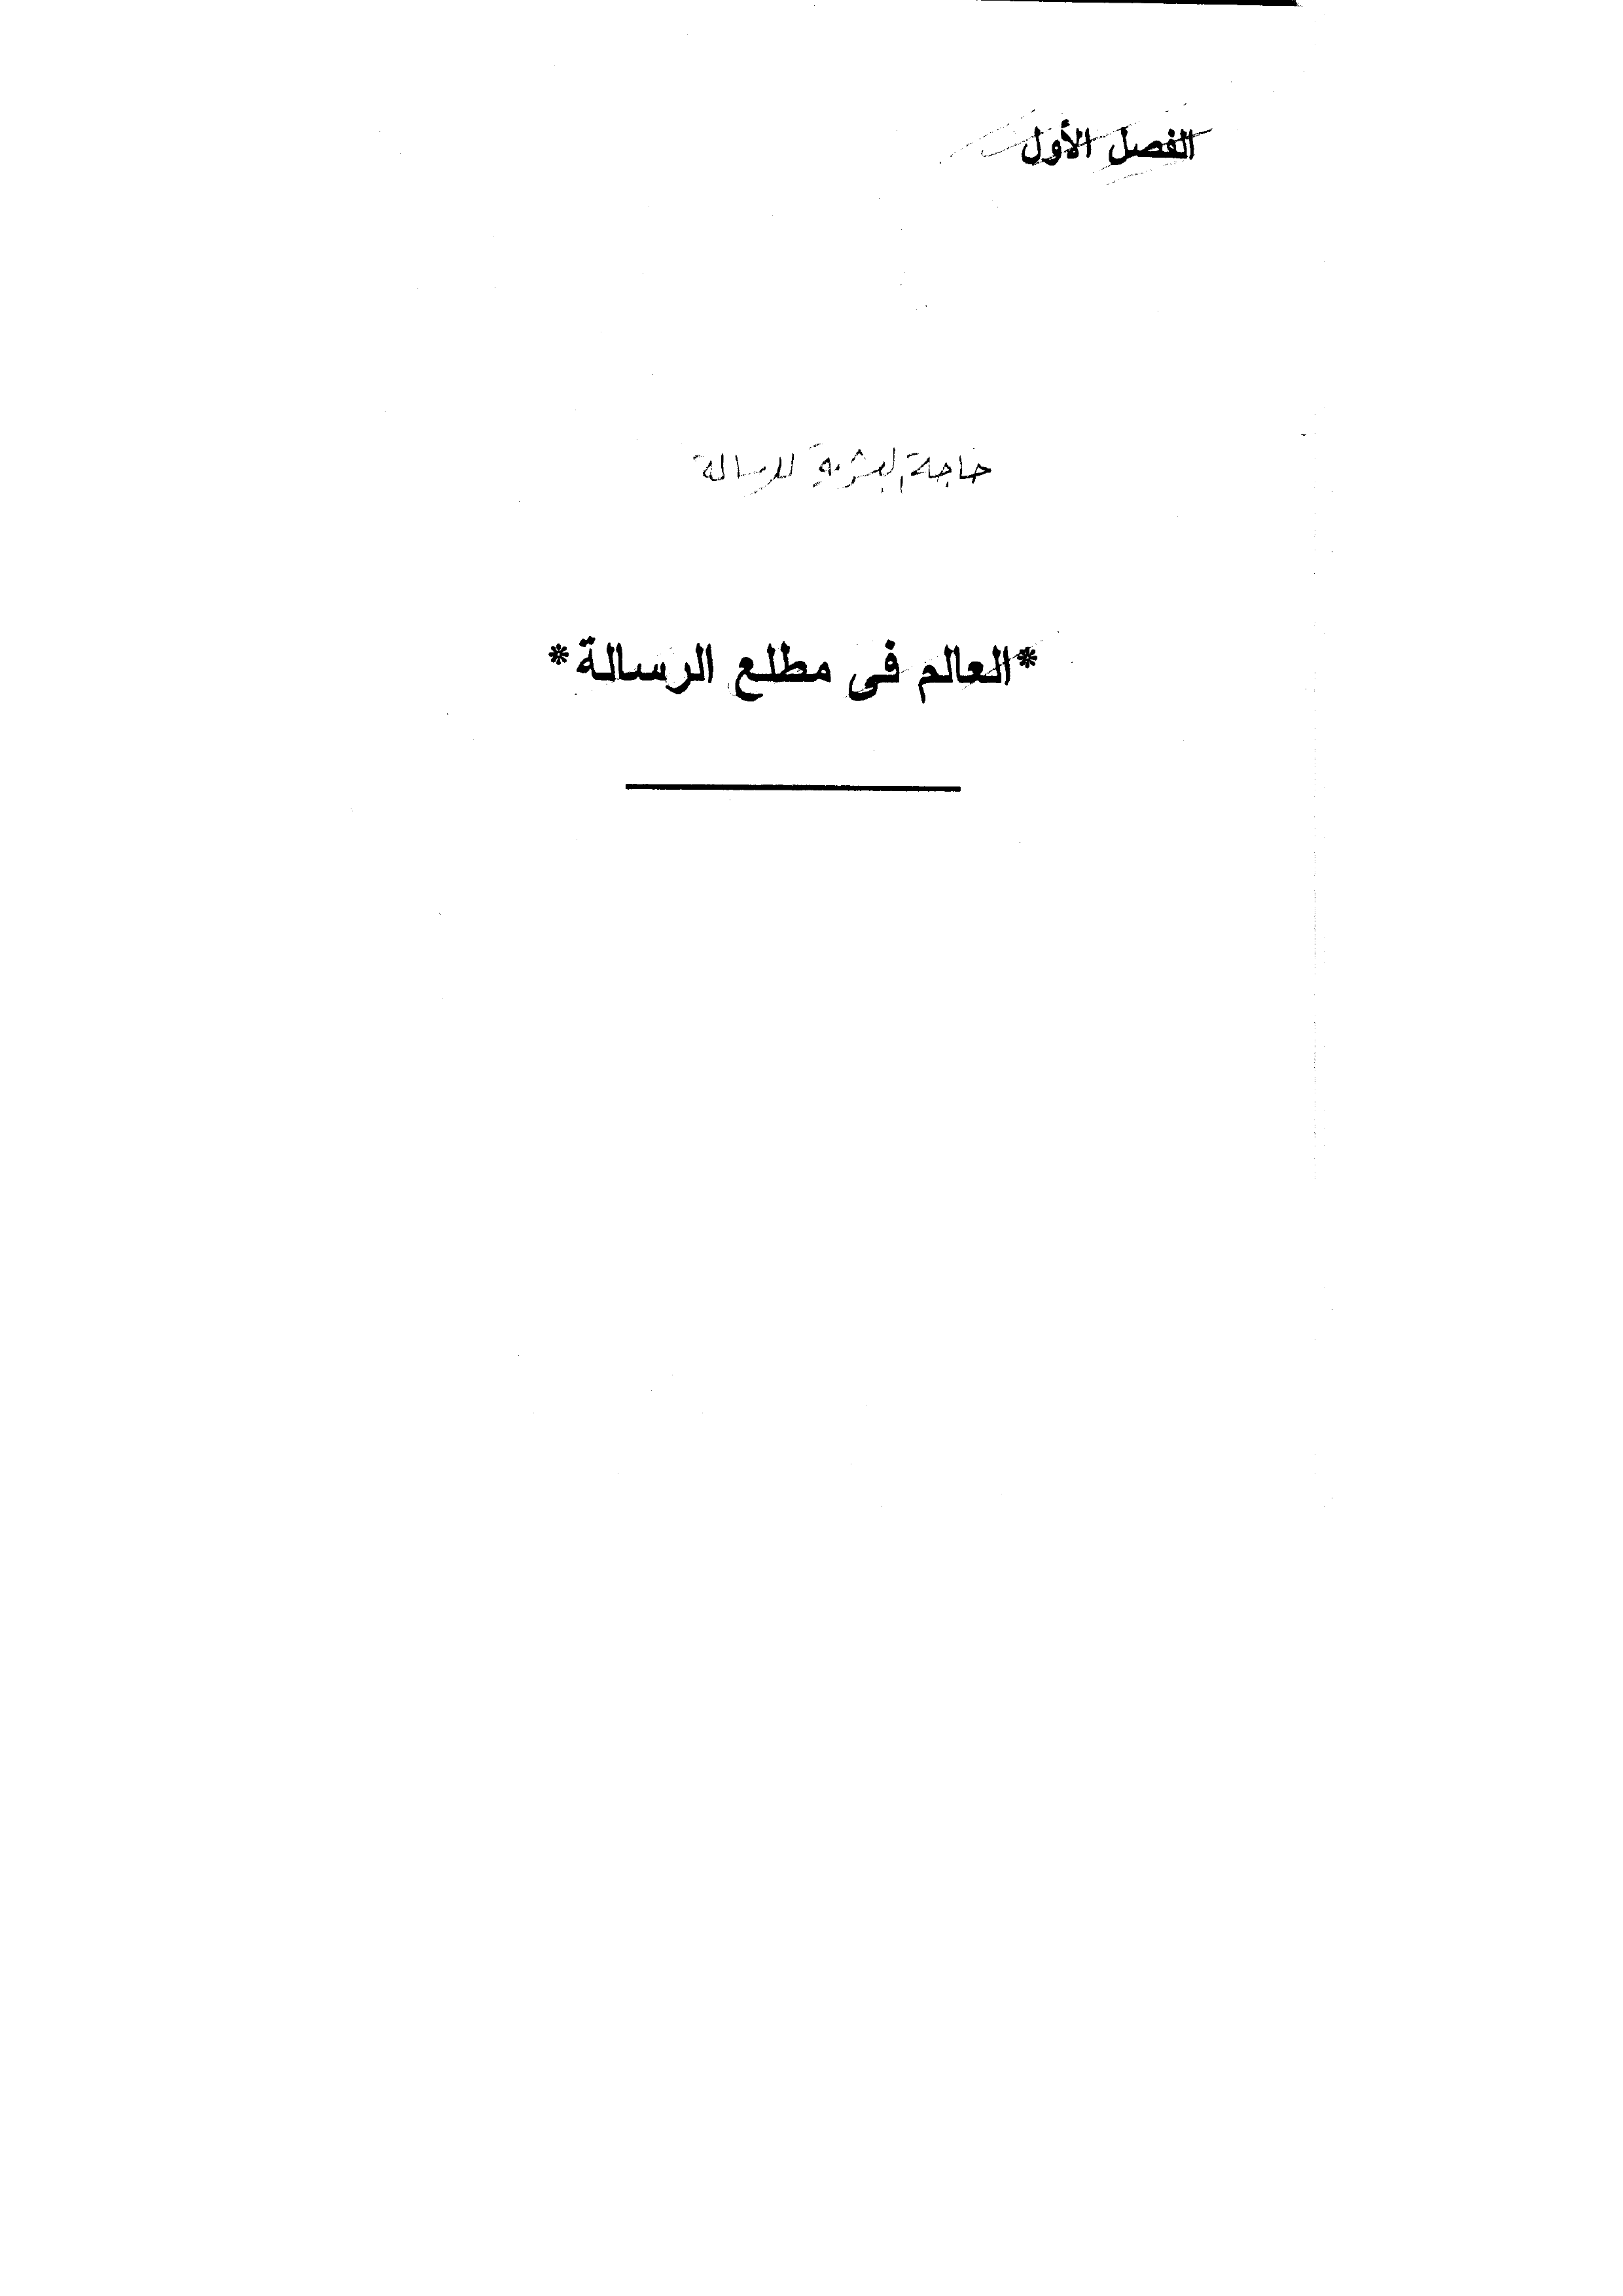 الفصل الأول
حاجة البشرية للرسالة
*العالم فى مطلع الرسالة*